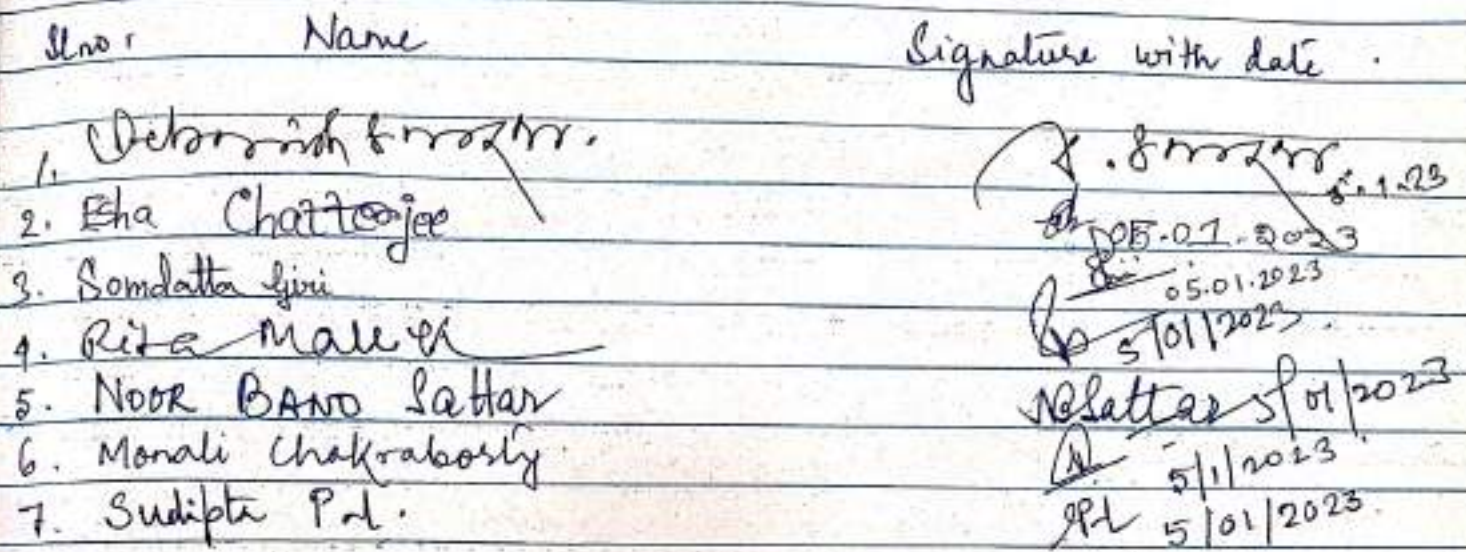 Sl no: Name Signature with date.
1. Debasish 5.1.23
2. Esha Chatterjee 05.01.2023
3. Somdatta Giri 05.01.2023
4. Rita Mallick 5/01/2023.
5. NOOR BANO Sattar NBSattar 5/01/2023
6. Monali Chakraborty 5/1/2023
7. Sudipta Pal. 5/01/2023.